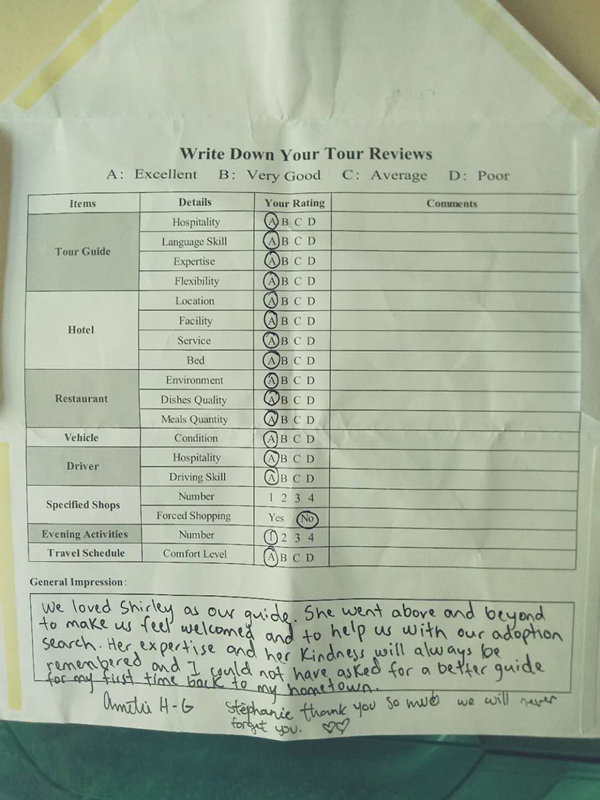 Write Down Your Tour Reviews
A: Excellent B: Very Good C: Average D: Poor
Items Details Your Rating Comments
Tour Guide Hospitality A B C D
Language Skill A B C D
Expertise A B C D
Flexibility A B C D
Hotel Location A B C D
Facility A B C D
Service A B C D
Bed A B C D
Restaurant Environment A B C D
Dishes Quality A B C D
Meals Quantity A B C D
Vehicle Condition A B C D
Driver Hospitality A B C D
Driving Skill A B C D
Specified Shops Number 1 2 3 4
Forced Shopping Yes No
Evening Activities Number 1 2 3 4
Travel Schedule Comfort Level A B C D
General Impression:
We loved Shirley as our guide. She went above and beyond
to make us feel welcomed and to help us with our adoption
search. Her expertise and her kindness will always be
remembered and I could not have asked for a better guide
for my first time back to my hometown.
H-G Stephanie thank you so much we will never
forget you. ♡♡